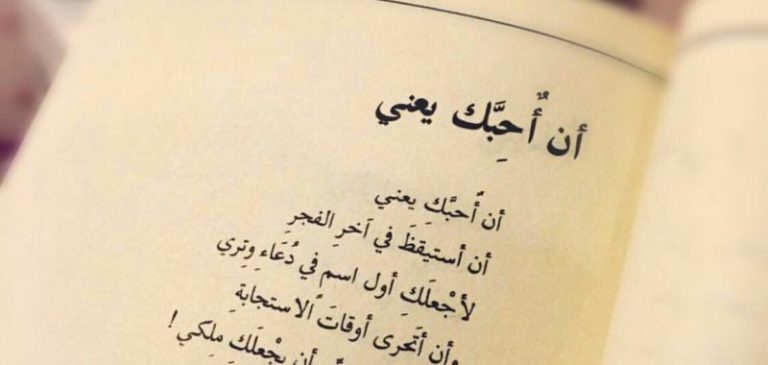 أن أُحِبَّك يعني
أن أُحبَّكِ يعني
أن أستيقظَ في آخرِ الفجرِ
لأجْعلَكِ أول اسم في دُعَاءِ وِتِري
وأن أتَحرى أوقاتَ الاستجابةِ
أن يجْعلَكِ ملكي !